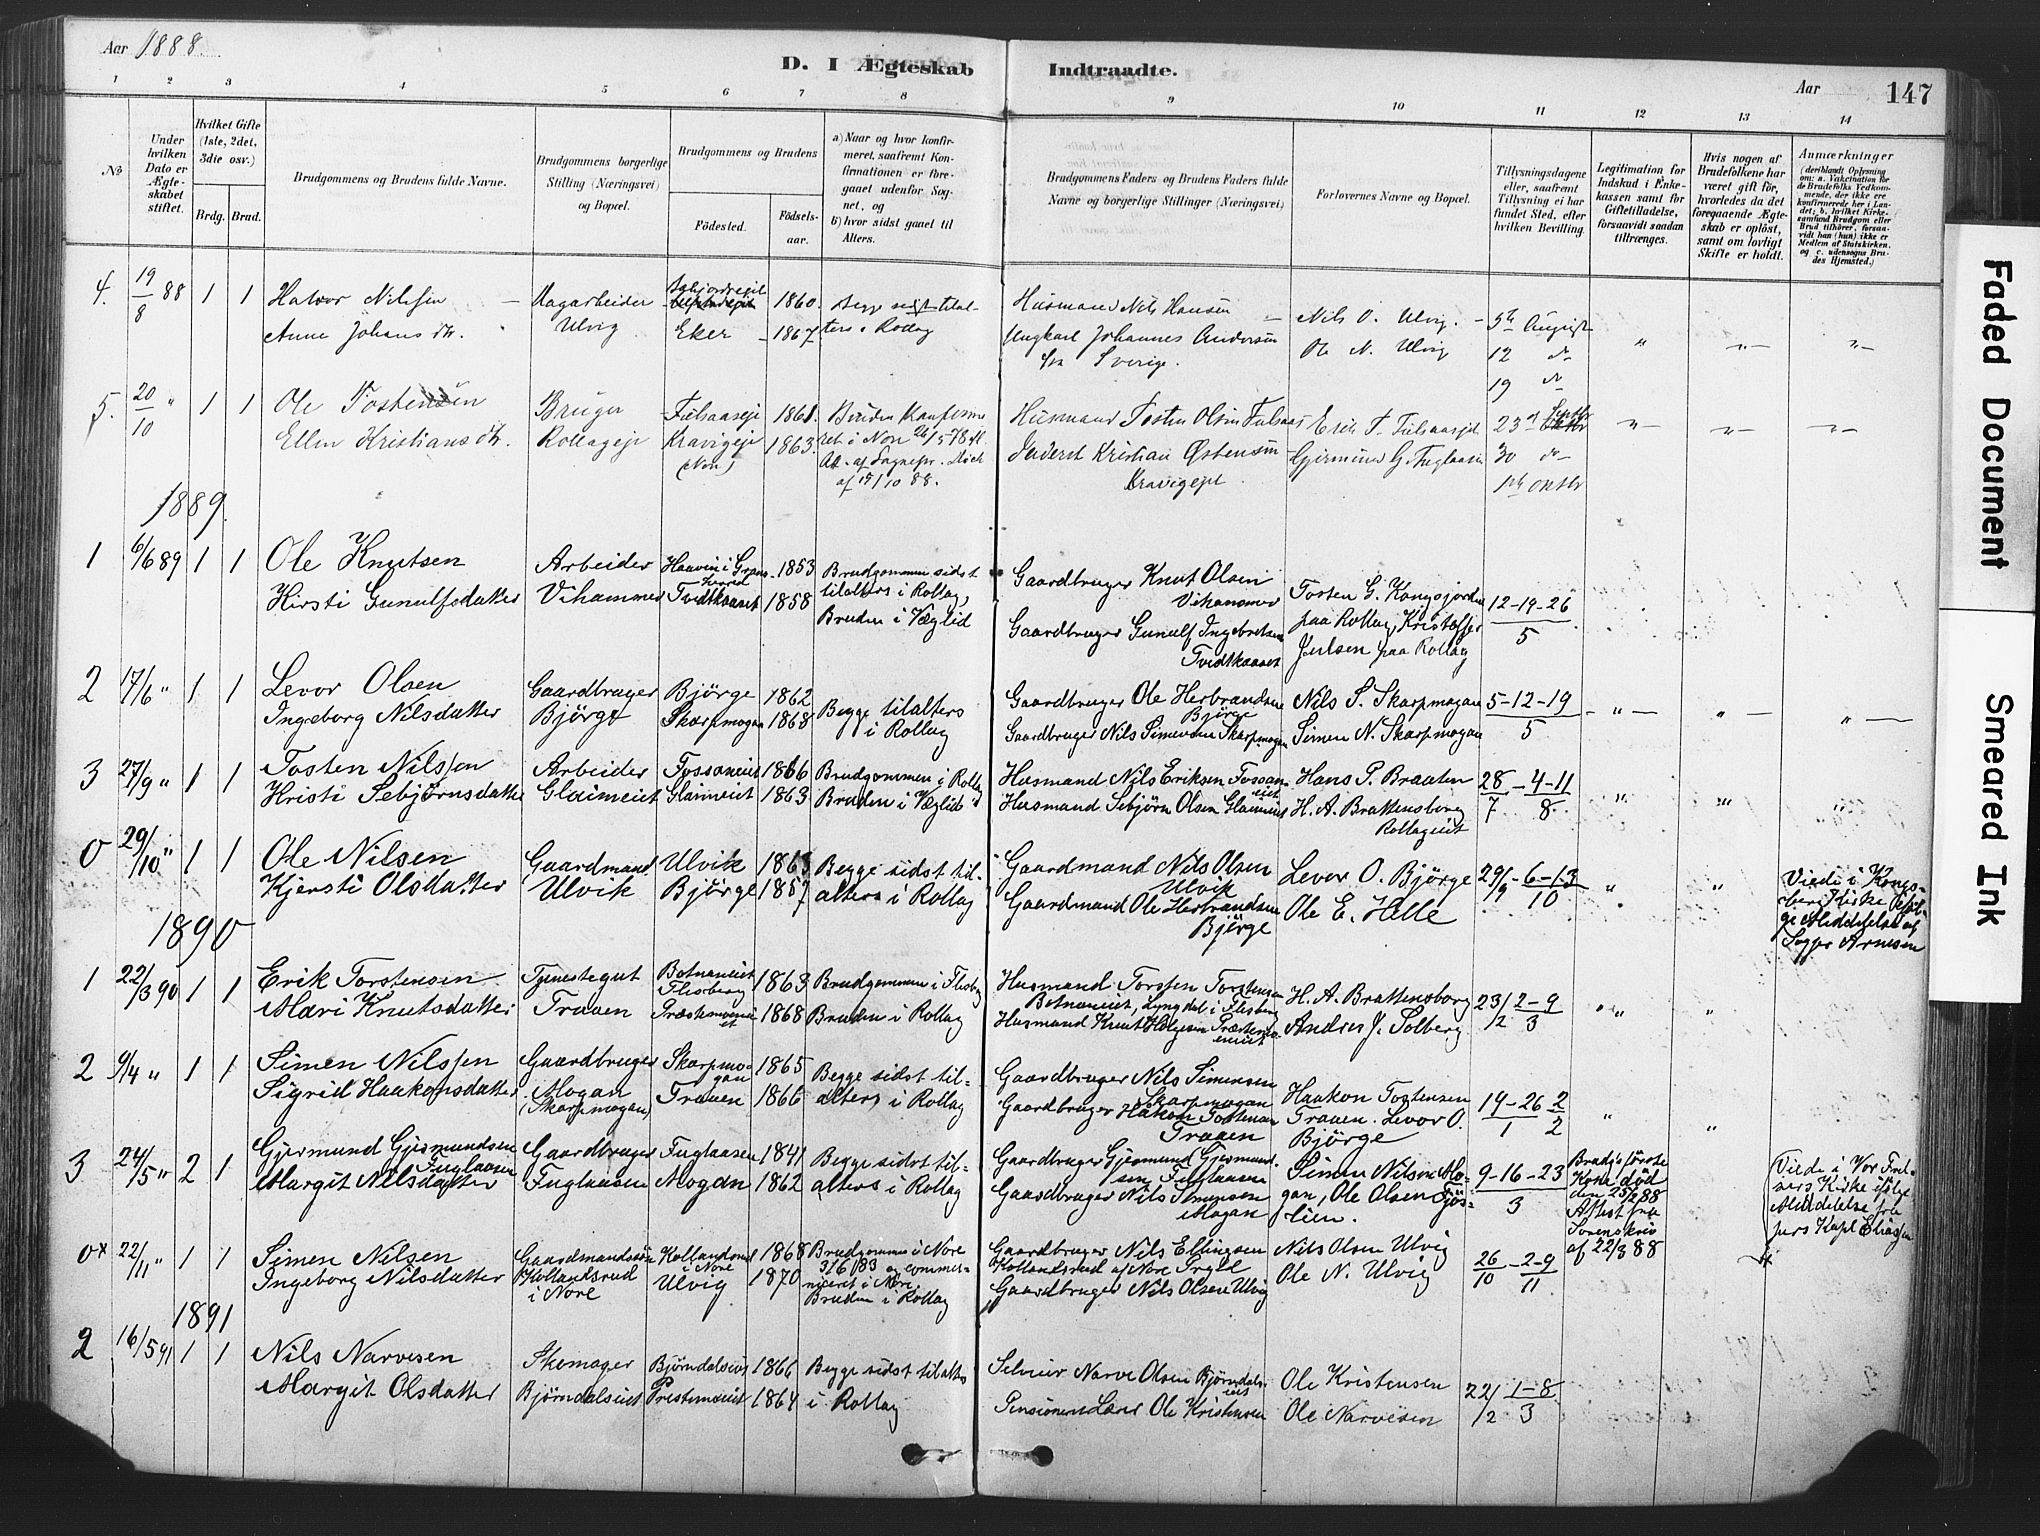 Aar 1888.
D. I Ægteskab Indtraadte.
Aar 147
1 2 3 4 5 6 7 8 9 10 11 12 13 14
No
Under hvilken Dato er Ægteskabet stiftet.
Hvilket Gifte (1ste, 2det, 3die osv.)
Brdg. Brud.
Brudgommens og Brudens fulde Navne.
Brudgommens borgerlige Stilling (Næringsvei) og Bopæl.
Brudgommens og Brudens
Fødested.
Fødselsaar.
a) Naar og hvor konfirmeret, saafremt Konfirmationen er foregaaet udenfor Sognet, og
b) hvor sidst gaaet til Alters.
Brudgommens Faders og Brudens Faders fulde Navne og borgerlige Stillinger (Næringsvei)
Forlovernes Navne og Bopæl.
Tillysningsdagene eller, saafremt Tillysning ei har fundet Sted, efter hvilken Bevilling.
Legitimation for Indskud i Enkekassen samt for Giftetilladelse, forsaavidt saadan tiltrænges.
Hvis nogen af Brudefolkene har været gift før, hvorledes da det foregaaende Ægteskab er opløst, samt om lovligt Skifte er holdt.
Anmærkninger (deriblandt Oplysning om: a. Vakcination for de Brudefolks Vedkommende, der ikke ere konfirmerede her i Landet; b. hvilket Kirkesamfund Brudgom eller Brud tilhører, forsaavidt han (hun) ikke er Medlem af Statskirken. og c. udensogns Brudes Hjemsted.)
4. 19/8 88 1 1 Halvor Nilssen Dagarbeider 1860. Begge sidst tilal- Husmand Nils Hansen Nils O. Ulvig. 5te August
Anne Johansdtr. Ulvig Eker 1867. ters i Rollag Ungkarl Johannes Andersen fra Sverige. Ole N. Ulvig 12 do
19 do
5. 20/10 " 1 1 Ole Tostensen Bruger 1861. Bruden konfirme- Husmand Tosten Olsen
Ellen Kristiansdtr. Rollageje Kravigeje (Nore) 1863. ret i Nore Kristian Østensen Kravigeje 30 do
af 17/10 88.
1889.
1 6/6 89 1 1 Ole Knutsen Arbeider 1853 Brudgommen sidst Gaardbruger Knut Olsen Vihammer Tosten G. Kongsjorden 12-19-26
Kirsti Gunulfsdatter Vihammer Tvidtkaaset 1858 tilalters i Rollag, Bruden i Væglid Gaardbruger Gunulf Ingebretsen Tvidtkaaset paa Rollag, Kristoffer Julsen paa Rollag 5
2 17/6 " 1 1 Levor Olsen Gaardbruger Bjørge 1862 Begge tilalters Gaardbruger Ole Herbrandsen Bjørge Nils S. Skarpmogan 5-12-19
Ingeborg Nilsdatter Bjørge Skarpmogan 1868 i Rollag Gaardbruger Nils Simensen Skarpmogan Simen N. Skarpmogan 5
3 27/9 " 1 1 Tosten Nilssen Arbeider Fossaneiet 1866 Brudgommen i Rollag Husmand Nils Eriksen Fossaneiet Hans P. Braaten 28-4-11
Kristi Sebjørnsdatter Glaimeiet Glaimeiet 1863 Bruden i Væglid Husmand Sebjørn Olsen Glaimeiet H. A. Brattensborg Rollageiet 7 8
0 29/10 " 1 1 Ole Nilsen Gaardmand Ulvik Begge sidst til- Gaardmand Nils Olsen Ulvik Levor O. Bjørge 29/9-6-13
Kjersti Olsdatter Ulvik Bjørge 1857 alters i Rollag Gaardmand Ole Herbrandsen Bjørge Ole E. Helle 10 Viede i Kongsberg Kirke ifølge Meddelelse af Sogpr Arnesen
1890
1 22/3 90 1 1 Erik Torstensen Tjenestegut Botnaneiet Flesberg 1863 Brudgommen i Flesberg Husmand Torsten Torstensen Botnaneiet, Lyngdal i Flesberg H. A. Brattensborg 23/2 2-9
Mari Knutsdatter Traaen Præstemoeneiet 1868 Bruden i Rollag Husmand Knut Helgesen Præstemoeneiet Andres J. Solberg 3
2 9/4 " 1 1 Simen Nilssen Gaardbruger Skarpmogan 1865 Begge sidst til- Gaardbruger Nils Simensen Skarpmogan Haakon Tostensen 19-26 2
Sigrid Haakonsdatter Mogan (Skarpmogan) Traaen 1866 alters i Rollag Gaardbruger Haakon Tostensen Traaen Traaen. Levor O. Bjørge 1 2
3 24/5 " 2 1 Gjermund Gjermundsen Fuglaasen Gaardbruger Fuglaasen 1841 Begge sidst til- Gaardbruger Gjermund Gjermundsen Fuglaasen Simen Nilsen Mo- 9-16-23 Brudg's første Kone død
Margit Nilsdatter Fuglaasen Mogan 1862 alters i Rollag Gaardbruger Nils Simensen Mogan gan, Ole Olsen Fjøslien. 3 den 25/2 88 Attest fra Sorenskriv af 22/8 88 Viede i Vor Frelsers Kirke ifølge Meddelelse fra pers Kapl Eliassen
0* 22/11 " 1 1 Simen Nilsen Gaardmandssøn Kollandsrud i Nore 1868 Brudgommen i Nore 3/6 83 og commu- Gaardbruger Nils Ellingsen Kollandsrud af Nore Nils Olsen Ulvig 26-2-9
Ingeborg Nilsdatter Kollandsrud i Nore Ulvig 1870 niceret i Nore. Bruden i Rollag Gaardbruger Nils Olsen Ulvig Ole N. Ulvig 10 11
1891
2 16/5 91 1 1 Nils Narvesen Skomager Bjørndalseiet 1866 Begge sidst tilalters Selveier Narve Olsen Bjørndalseiet Ole Kristensen 22/2 1-8
Margit Olsdatter Bjørndalseiet Prestemoeiet 1864 i Rollag Pensioneret Lærer Ole Kristensen Ole Narvesen 3
Faded Document
Smeared Ink